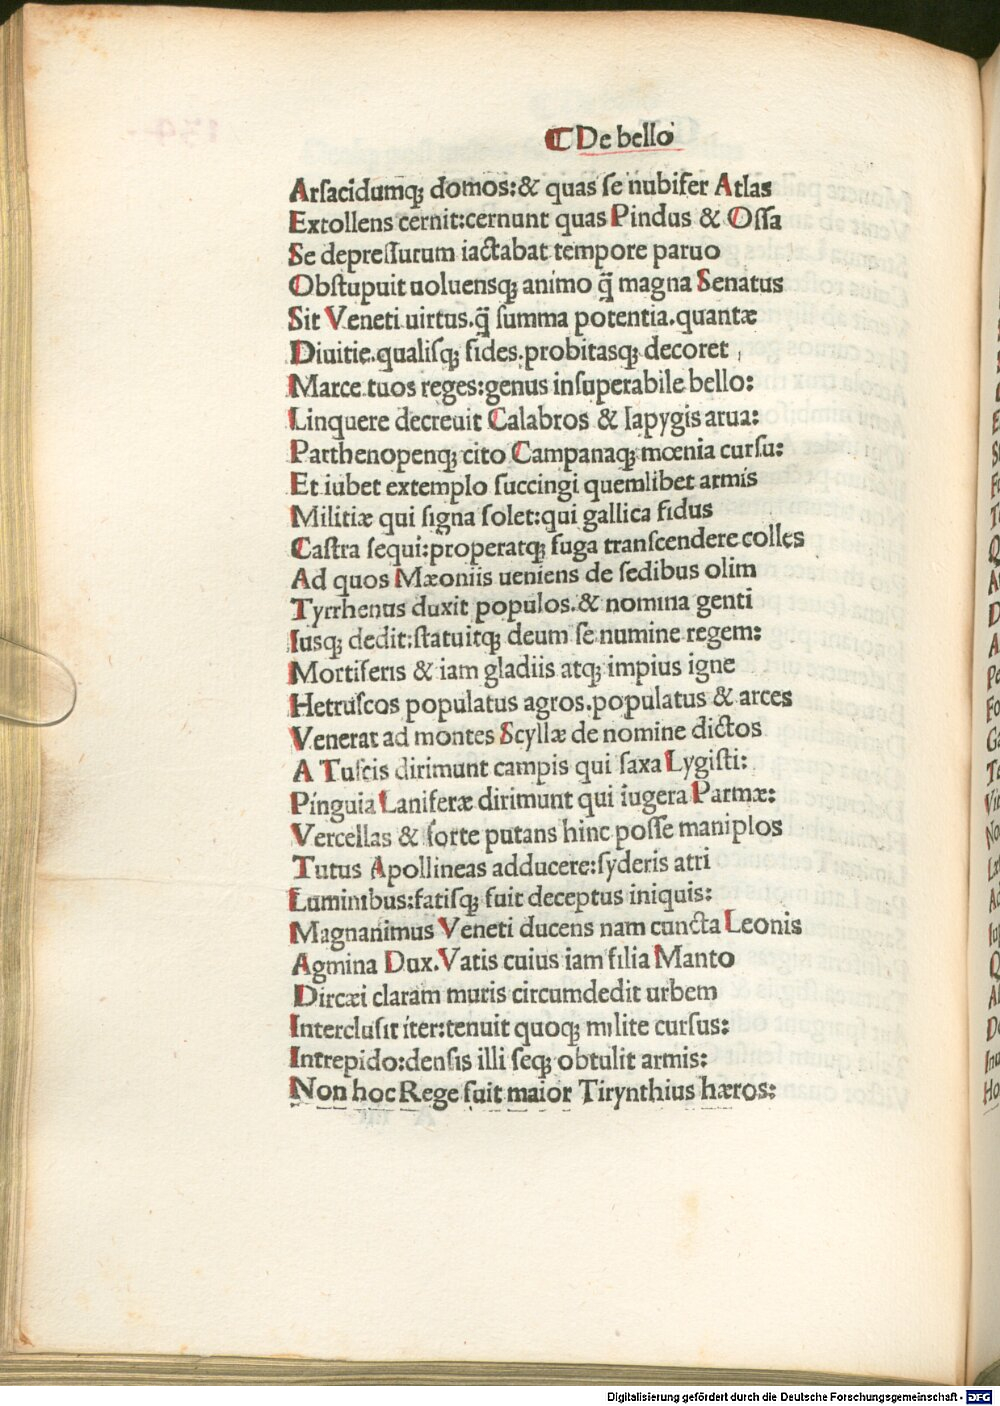 ⁋ De bello
Arſacidumqꝫ domos:& quas ſe nubifer Atlas
Extollens cernit:cernunt quas Pindus & Oſſa
Se depreſſurum iactabat tempore paruo
Obſtupuit uoluensqꝫ animo q̃ magna Senatus
Sit Veneti uirtus.q̃ ſumma potentia.quantæ
Diuitie.qualiſqꝫ fides.probitasqꝫ decoret
Marce tuos reges:genus inſuperabile bello:
Linquere decreuit Calabros & Iapygis arua:
Parthenopenqꝫ cito Campanaqꝫ mœnia curſu:
Et iubet extemplo ſuccingi quemlibet armis
Militiæ qui ſigna ſolet:qui gallica fidus
Caſtra ſequi:properatqꝫ fuga tranſcendere colles
Ad quos Mæoniis ueniens de ſedibus olim
Tyrrhenus duxit populos.& nomina genti
Iusqꝫ dedit:ſtatuitqꝫ deum ſe numine regem:
Mortiferis & iam gladiis atqꝫ impius igne
Hetruſcos populatus agros.populatus & arces
Venerat ad montes Scyllæ de nomine dictos
A Tuſcis dirimunt campis qui ſaxa Lygiſti:
Pinguia Laniferæ dirimunt qui iugera Parmæ:
Vercellas & forte putans hinc poſſe maniplos
Tutus Apollineas adducere:ſyderis atri
Luminibus:fatiſqꝫ fuit deceptus iniquis:
Magnanimus Veneti ducens nam cuncta Leonis
Agmina Dux.Vatis cuius iam filia Manto
Dircæi claram muris circumdedit urbem
Intercluſit iter:tenuit quoqꝫ milite curſus:
Intrepido:denſis illi ſeqꝫ obtulit armis:
Non hoc Rege fuit maior Tirynthius hæros:
Digitalisierung gefördert durch die Deutsche Forschungsgemeinschaft - DFG